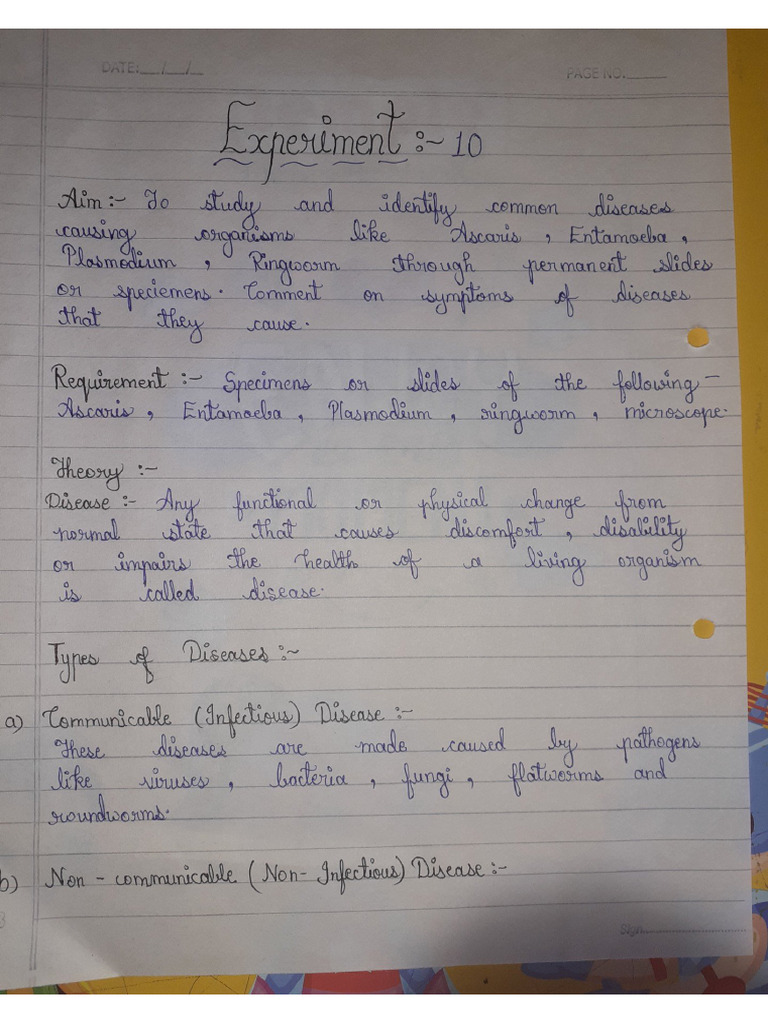 DATE:__/__/__
PAGE NO.
Experiment :- 10
Aim :- To study and identify common diseases
causing organisms like Ascaris , Entamoeba ,
Plasmodium , Ringworm through permanent slides
or speciemens. Comment on symptoms of diseases
that they cause.
Requirement :- Specimens or slides of the following -
Ascaris , Entamaeba , Plasmodium , ringworm , microscope.
Theory :-
Disease :- Any functional or physical change from
normal state that causes discomfort , disability
or impairs the health of a living organism
is called disease.
Types of Diseases :-
a) Communicable (Infectious) Disease :-
These diseases are made caused by pathogens
like viruses , bacteria , fungi , flatworms and
roundworms.
b) Non - communicable ( Non- Infectious) Disease :-
Sign